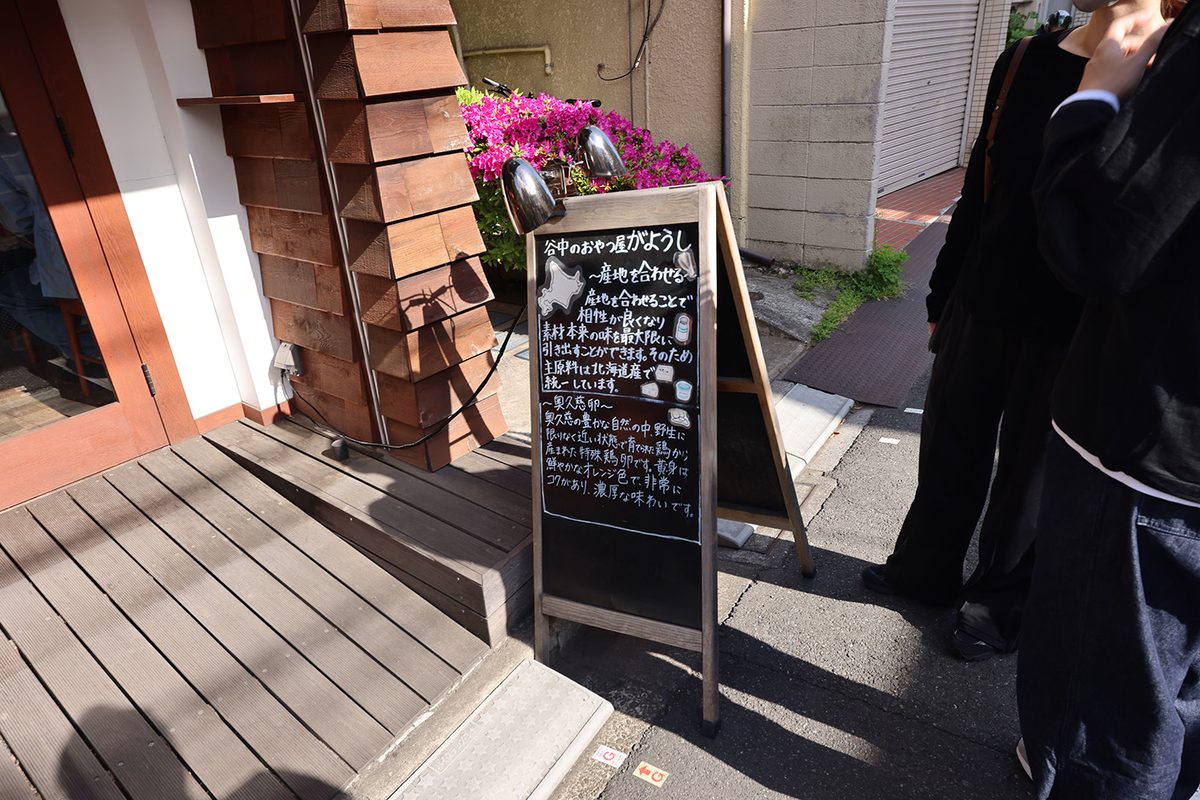 谷中のおやつ屋がようし
～産地を合わせる
産地を合わせることで
相性が良くなり
素材本来の味を最大限に
引き出すことができます。そのため
主原料は北海道産で
統一しています。
～奥久慈卵～
奥久慈の豊かな自然の中、野生に
限りなく近い状態で育てられた鶏から
産まれた特殊鶏卵です。黄身は
鮮やかなオレンジ色で、非常に
コクがあり、濃厚な味わいです。
G
G